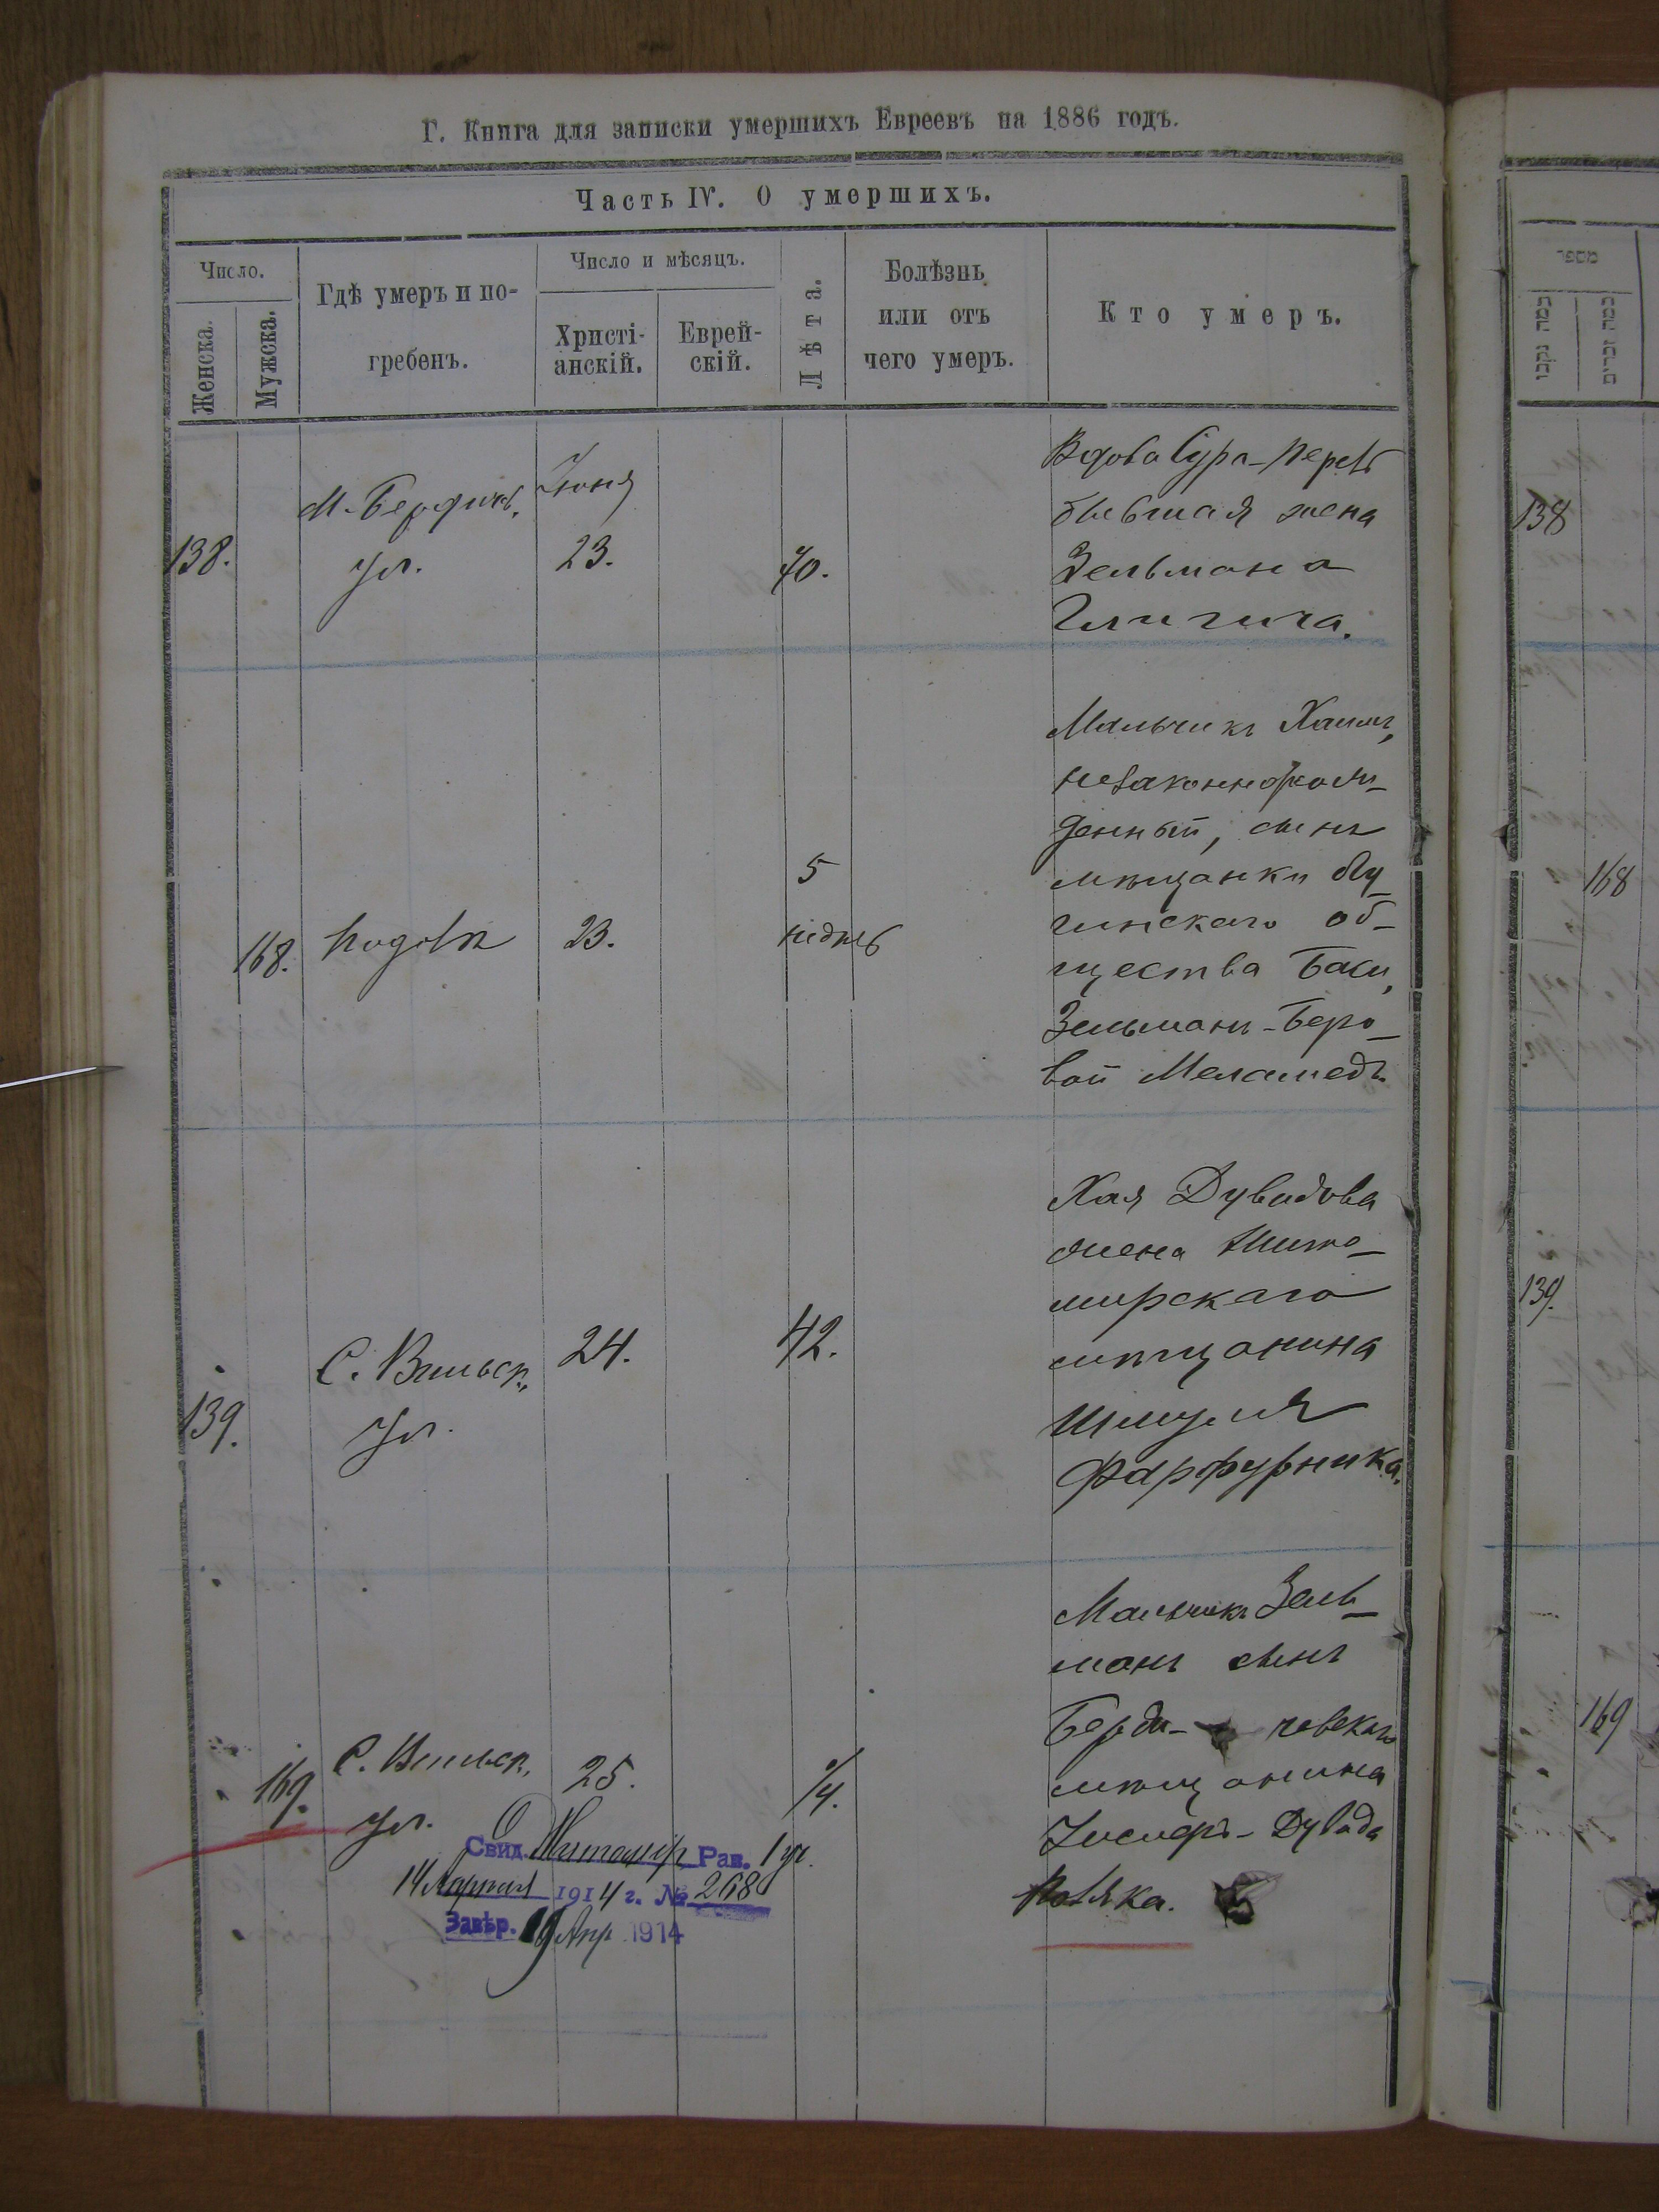 Г. Книга для записки умершихъ Евреевъ на 1886 годъ.
Часть IV. О умершихъ.
Число.
Женска.
Мужска.
Гдѣ умеръ и по-
гребенъ.
Число и мѣсяцъ.
Христі-
анскій.
Еврей-
скій.
Лѣта.
Болѣзнь
или отъ
чего умеръ.
Кто умеръ.
138.
М. Бердич.
ул.
Іюня
23.
70.
Вдова Сура-Перль
бывшая жена
Зельмана
168.
23.
5
недѣль
Мальчикъ Хаимъ,
незаконнорож-
денный, сынъ
мѣщанки
гинскаго об-
щества Баси,
Зельманъ-Беро-
вой Меламедъ
139.
С. Вильск.
ул.
24.
42.
Хая Дувидова
жена Жито-
мирскаго
мѣщанина
Шмуля
Фарфурника.
169.
С. Вильск.
ул.
25.
1/4.
Мальчикъ Зель-
манъ сынъ
Берди- чевскаго
мѣщанина
Іосифъ-Дувида
Поляка.
Свид. Житомір. Рав. 1 уч.
14 Апреля 1914 г. № 268
Завѣр. 19 Апр 1914
138
168
139.
169